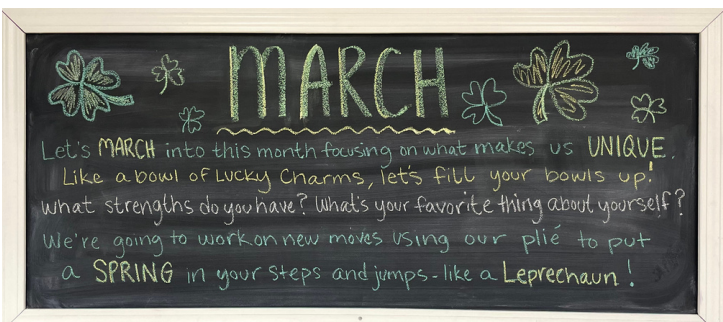 MARCH
Let's MARCH into this month focusing on what makes us UNIQUE.
Like a bowl of Lucky Charms, let's fill your bowls up!
What strengths do you have? What's your favorite thing about yourself?
We're going to work on new moves using our plié to put
a SPRING in your steps and jumps - like a Leprechaun!